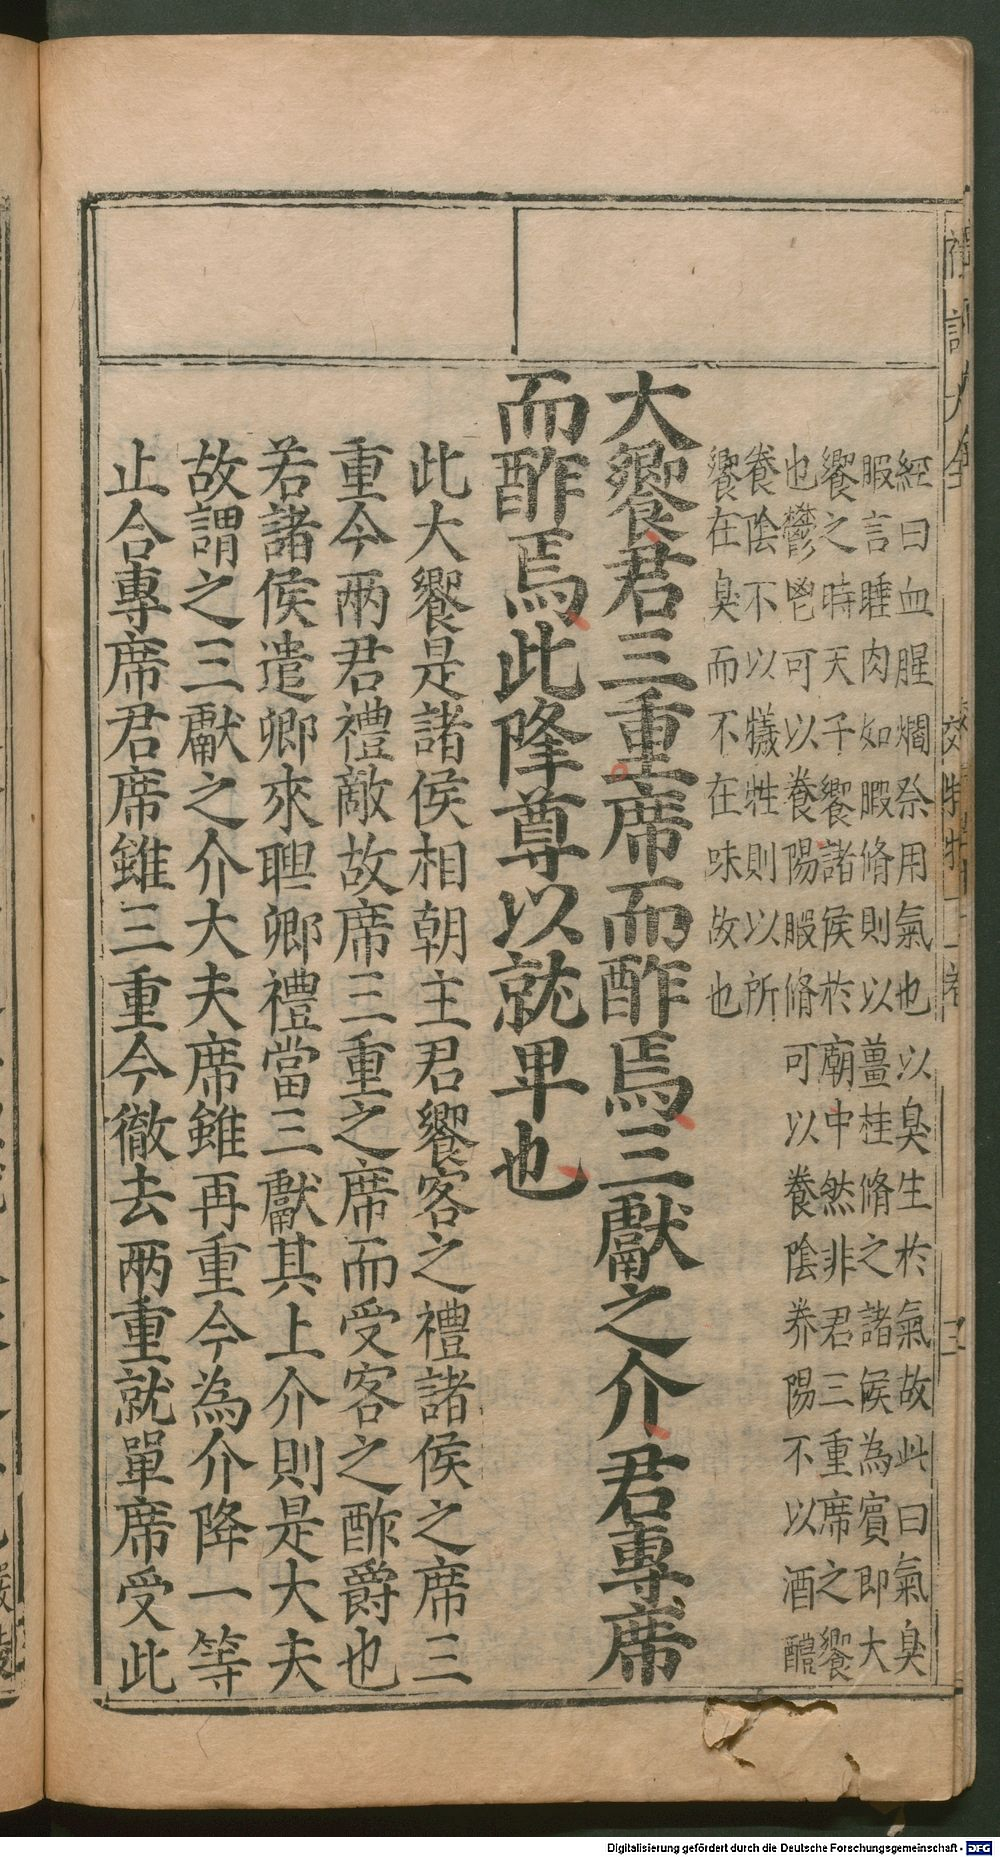 禮記大全
經曰血腥爓祭用氣也以臭生於氣故此曰氣臭
腶言睡肉如腶脩則以薑桂脩之諸侯為賓即大
饗之時天子饗諸侯於廟中然非君三重席之饗
也鬱鬯可以養陽腶脩可以養陰养陽不以酒醴
養陰不以犧牲則以所
饗在臭而不在味故也
大饗君三重席而酢焉三獻之介君專席
而酢焉此降尊以就卑也
此大饗是諸侯相朝主君饗客之禮諸侯之席三
重今兩君禮敵故席三重之席而受客之酢爵也
若諸侯遣卿來聘卿禮當三獻其上介則是大夫
故謂之三獻之介大夫席雖再重今為介降一等
止合專席君席雖三重今徹去兩重就單席受此
Digitalisierung gefördert durch die Deutsche Forschungsgemeinschaft - DFG